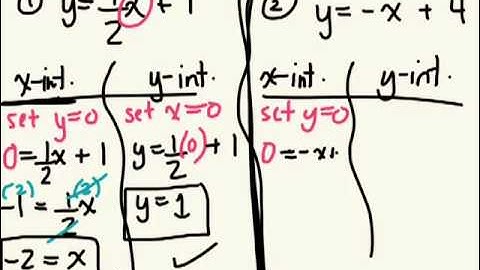 ① y=1/2x+1
x-int. y-int.
set y=0 set x=0
0=1/2x+1 y=1/2(0)+1
(2) (2)
-1=1/2x y=1
-2=x
② y=-x+4
x-int. y-int.
set y=0
0=-x+